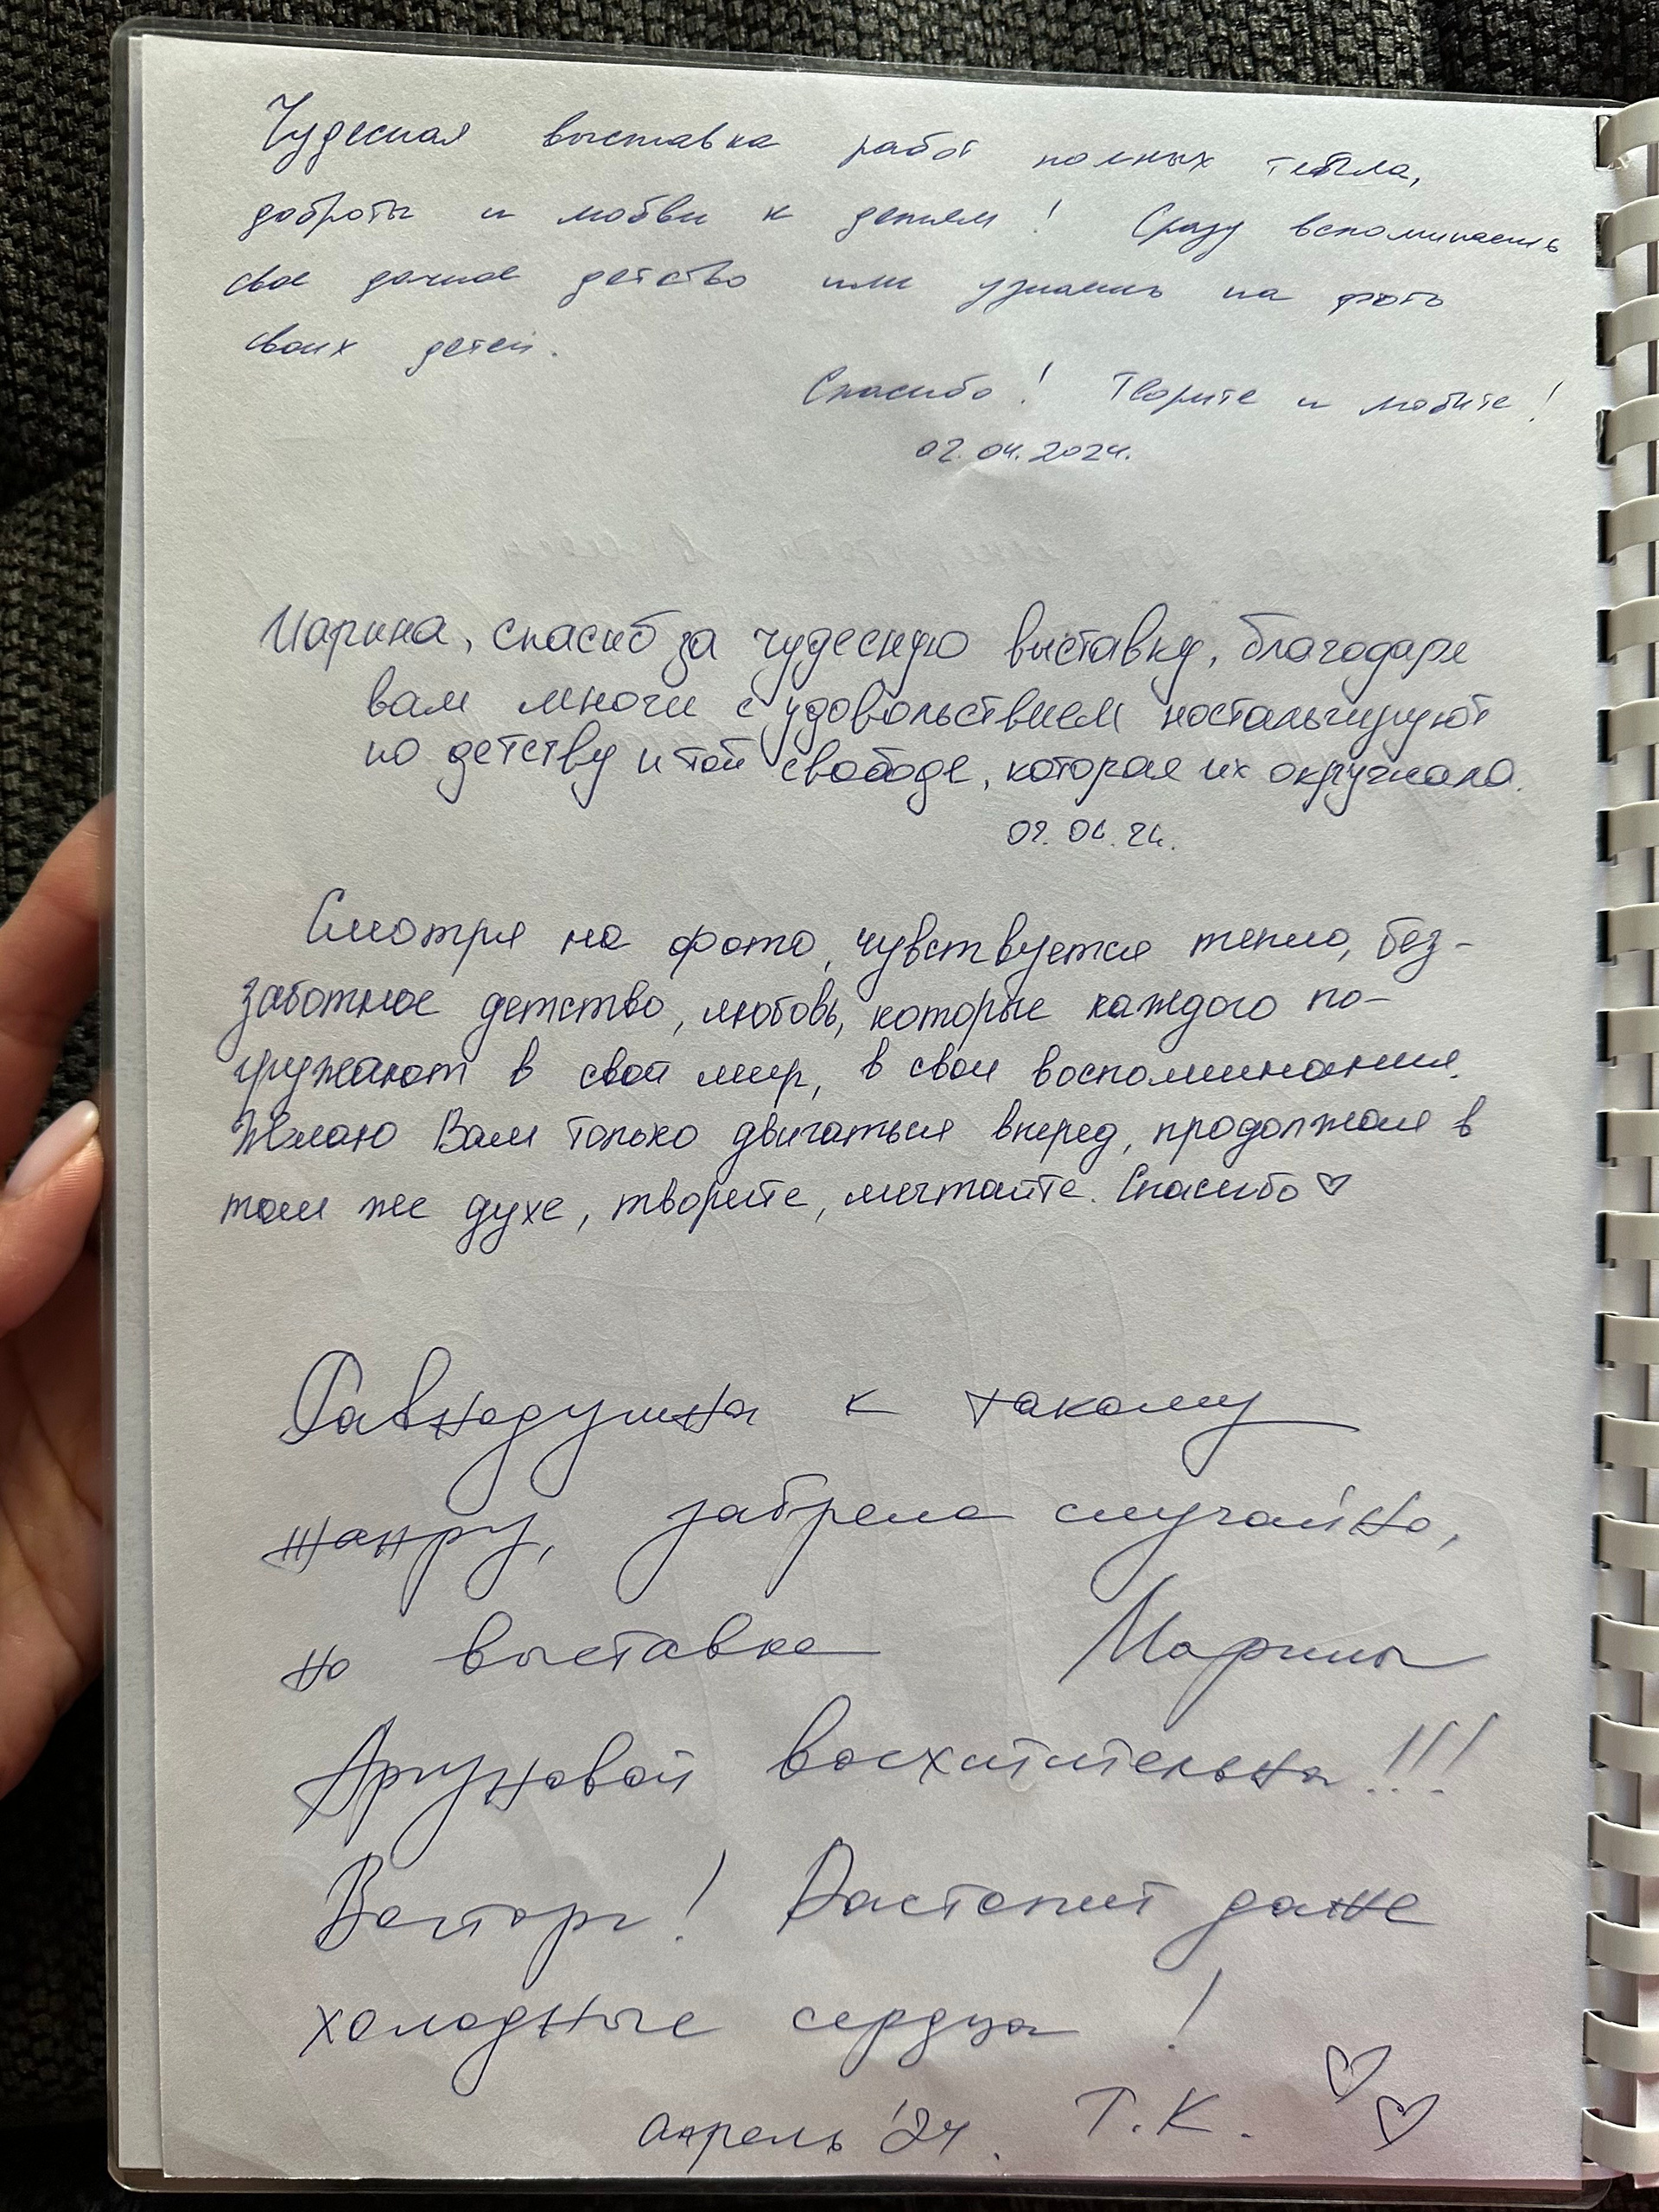 Чудесная выставка работ полных тепла,
доброты и любви к детям! Сразу вспоминаешь
свое дачное детство или узнаешь на фото
своих детей.
Спасибо! Творите и любите!
02.04.2024.
Марина, спасиб за чудесную выставку, благодаря
вам многи с удовольствием ностальгируют
по детству и той свободе, которая их окружала.
02.04.24.
Смотря на фото, чувствуется тепло, без-
заботное детство, любовь, которые каждого по-
гружают в свой мир, в свои воспоминания.
Желаю Вам только двигаться вперед, продолжая в
том же духе, творите, мечтайте. Спасибо ♡
Равнодушна к такому
жанру, забрела случайно,
но выставка Марины
Аргуновой восхитительна!!!
Восторг! Растопит даже
холодные сердца!
апрель '24. Т.К. ♡♡